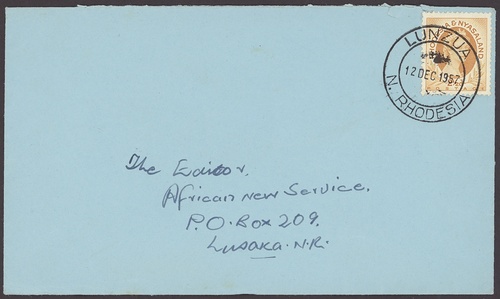 & NYASALAND
LUNZUA
12 DEC 1957
N. RHODESIA
The Editor,
African New Service,
P.O. Box 209,
Lusaka. N.R.